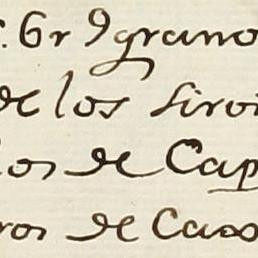 : 6r 9grano
de los siroi
los de Cap
ros de Caxo